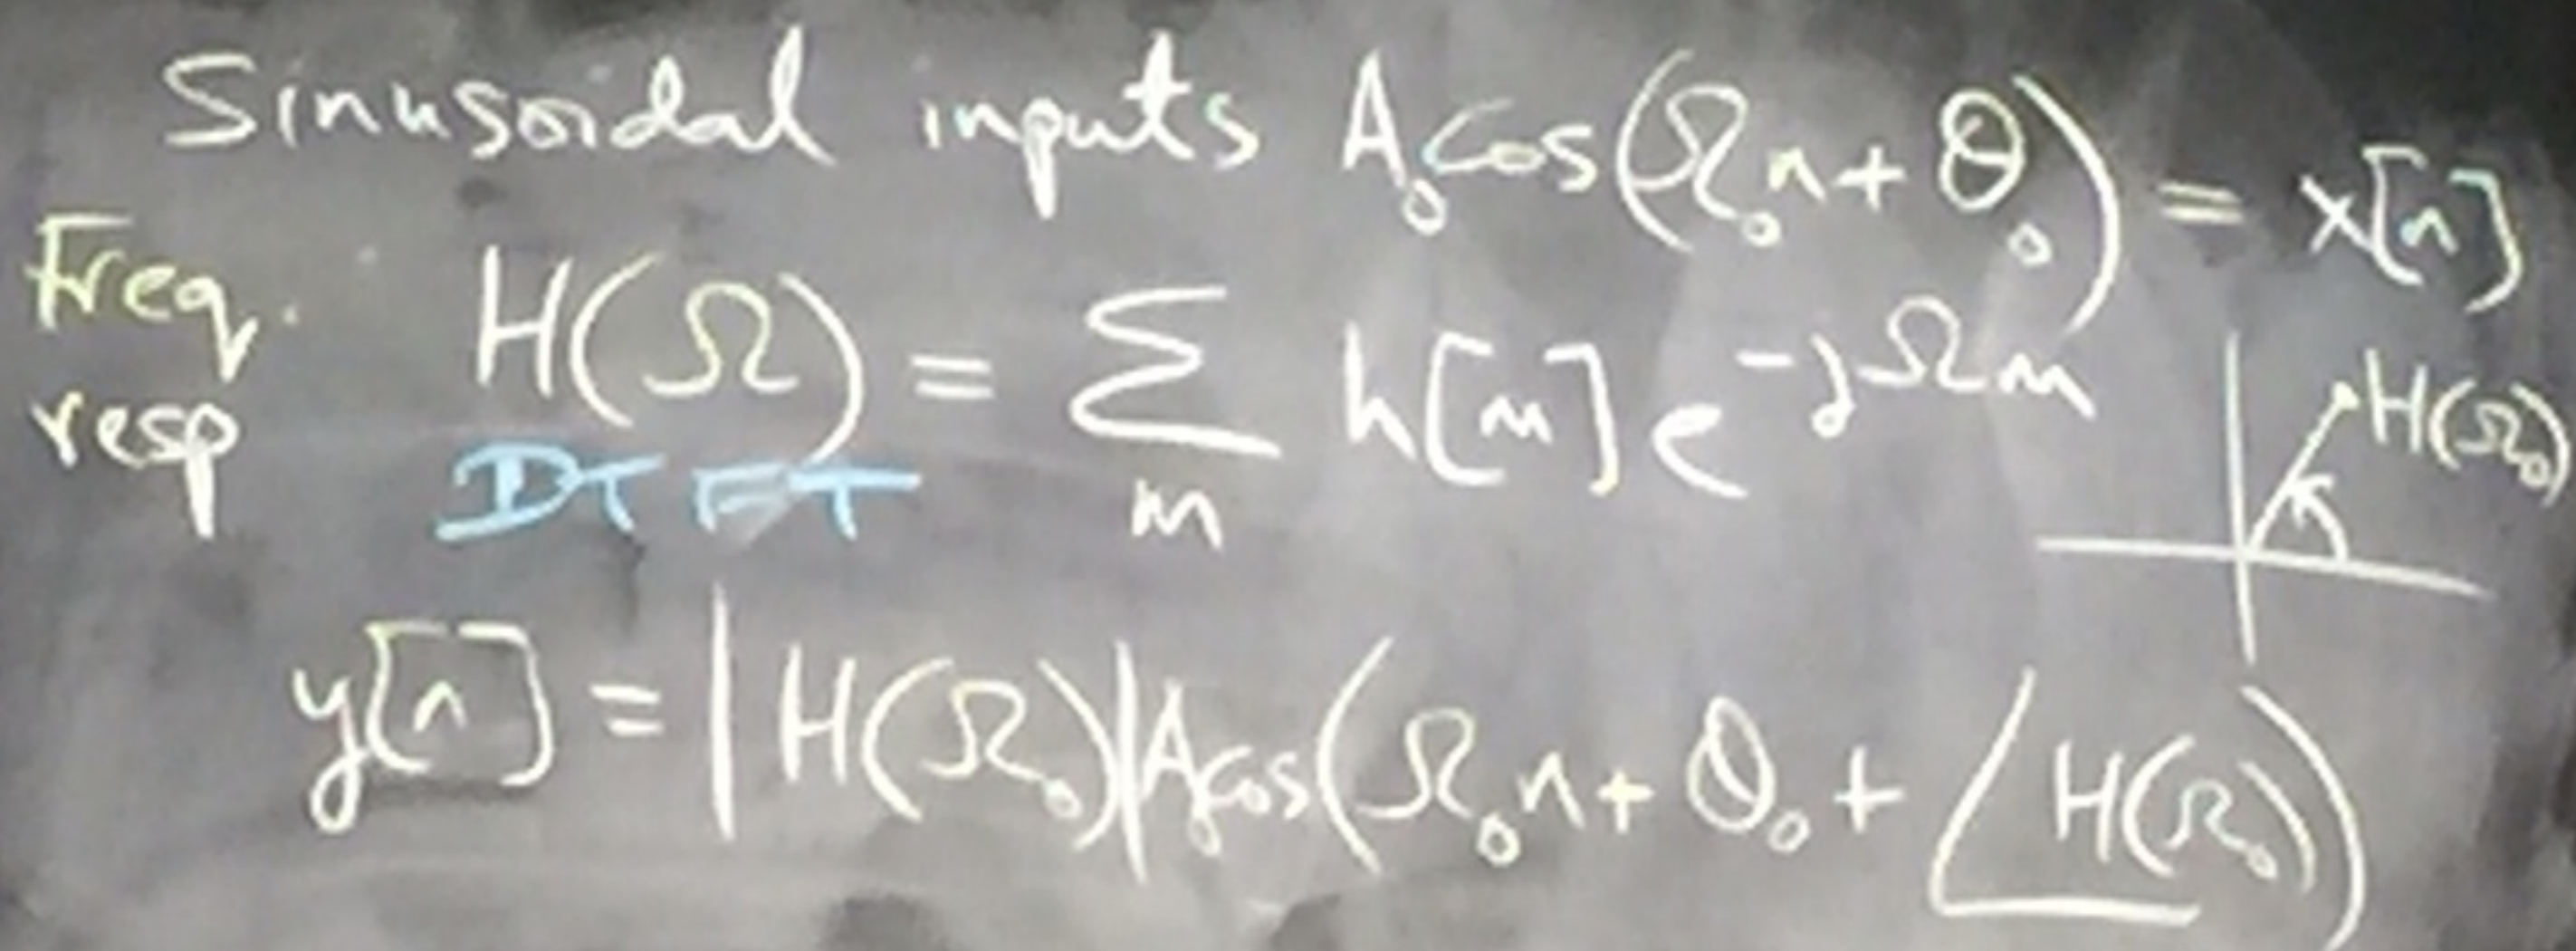 Sinusoidal inputs A₀cos(Ω₀n+θ₀) = x[n]
Freq. resp
H(Ω) = Σₘ h[m] e^(-jΩm)
DTFT
H(Ω₀)
y[n] = |H(Ω₀)|A₀cos(Ω₀n+θ₀+∠H(Ω₀))